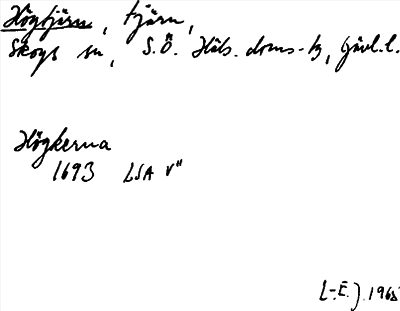 Högtjärn, tjärn,
Skogs sn, S.Ö. Häls. doms.-tg, Gävl.l.
Högkerna
1693 LSA V"
L-E.J. 1968